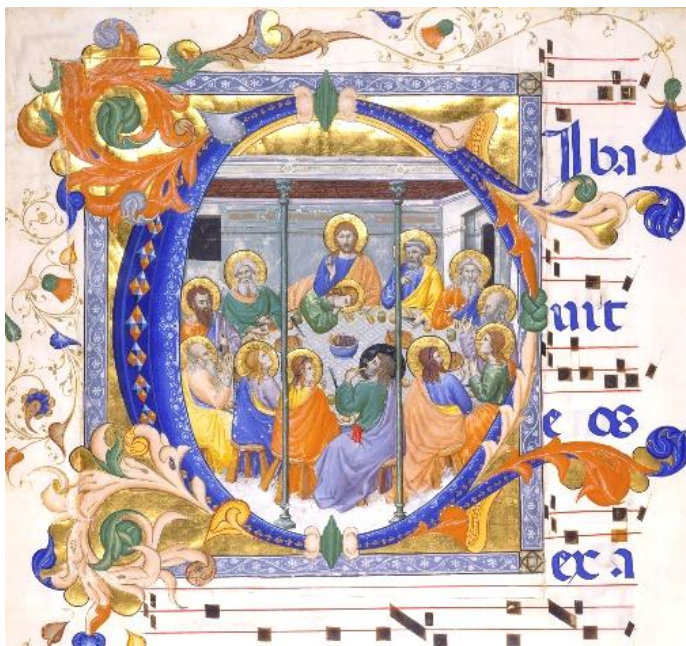 CIba
uit
e os
ex a